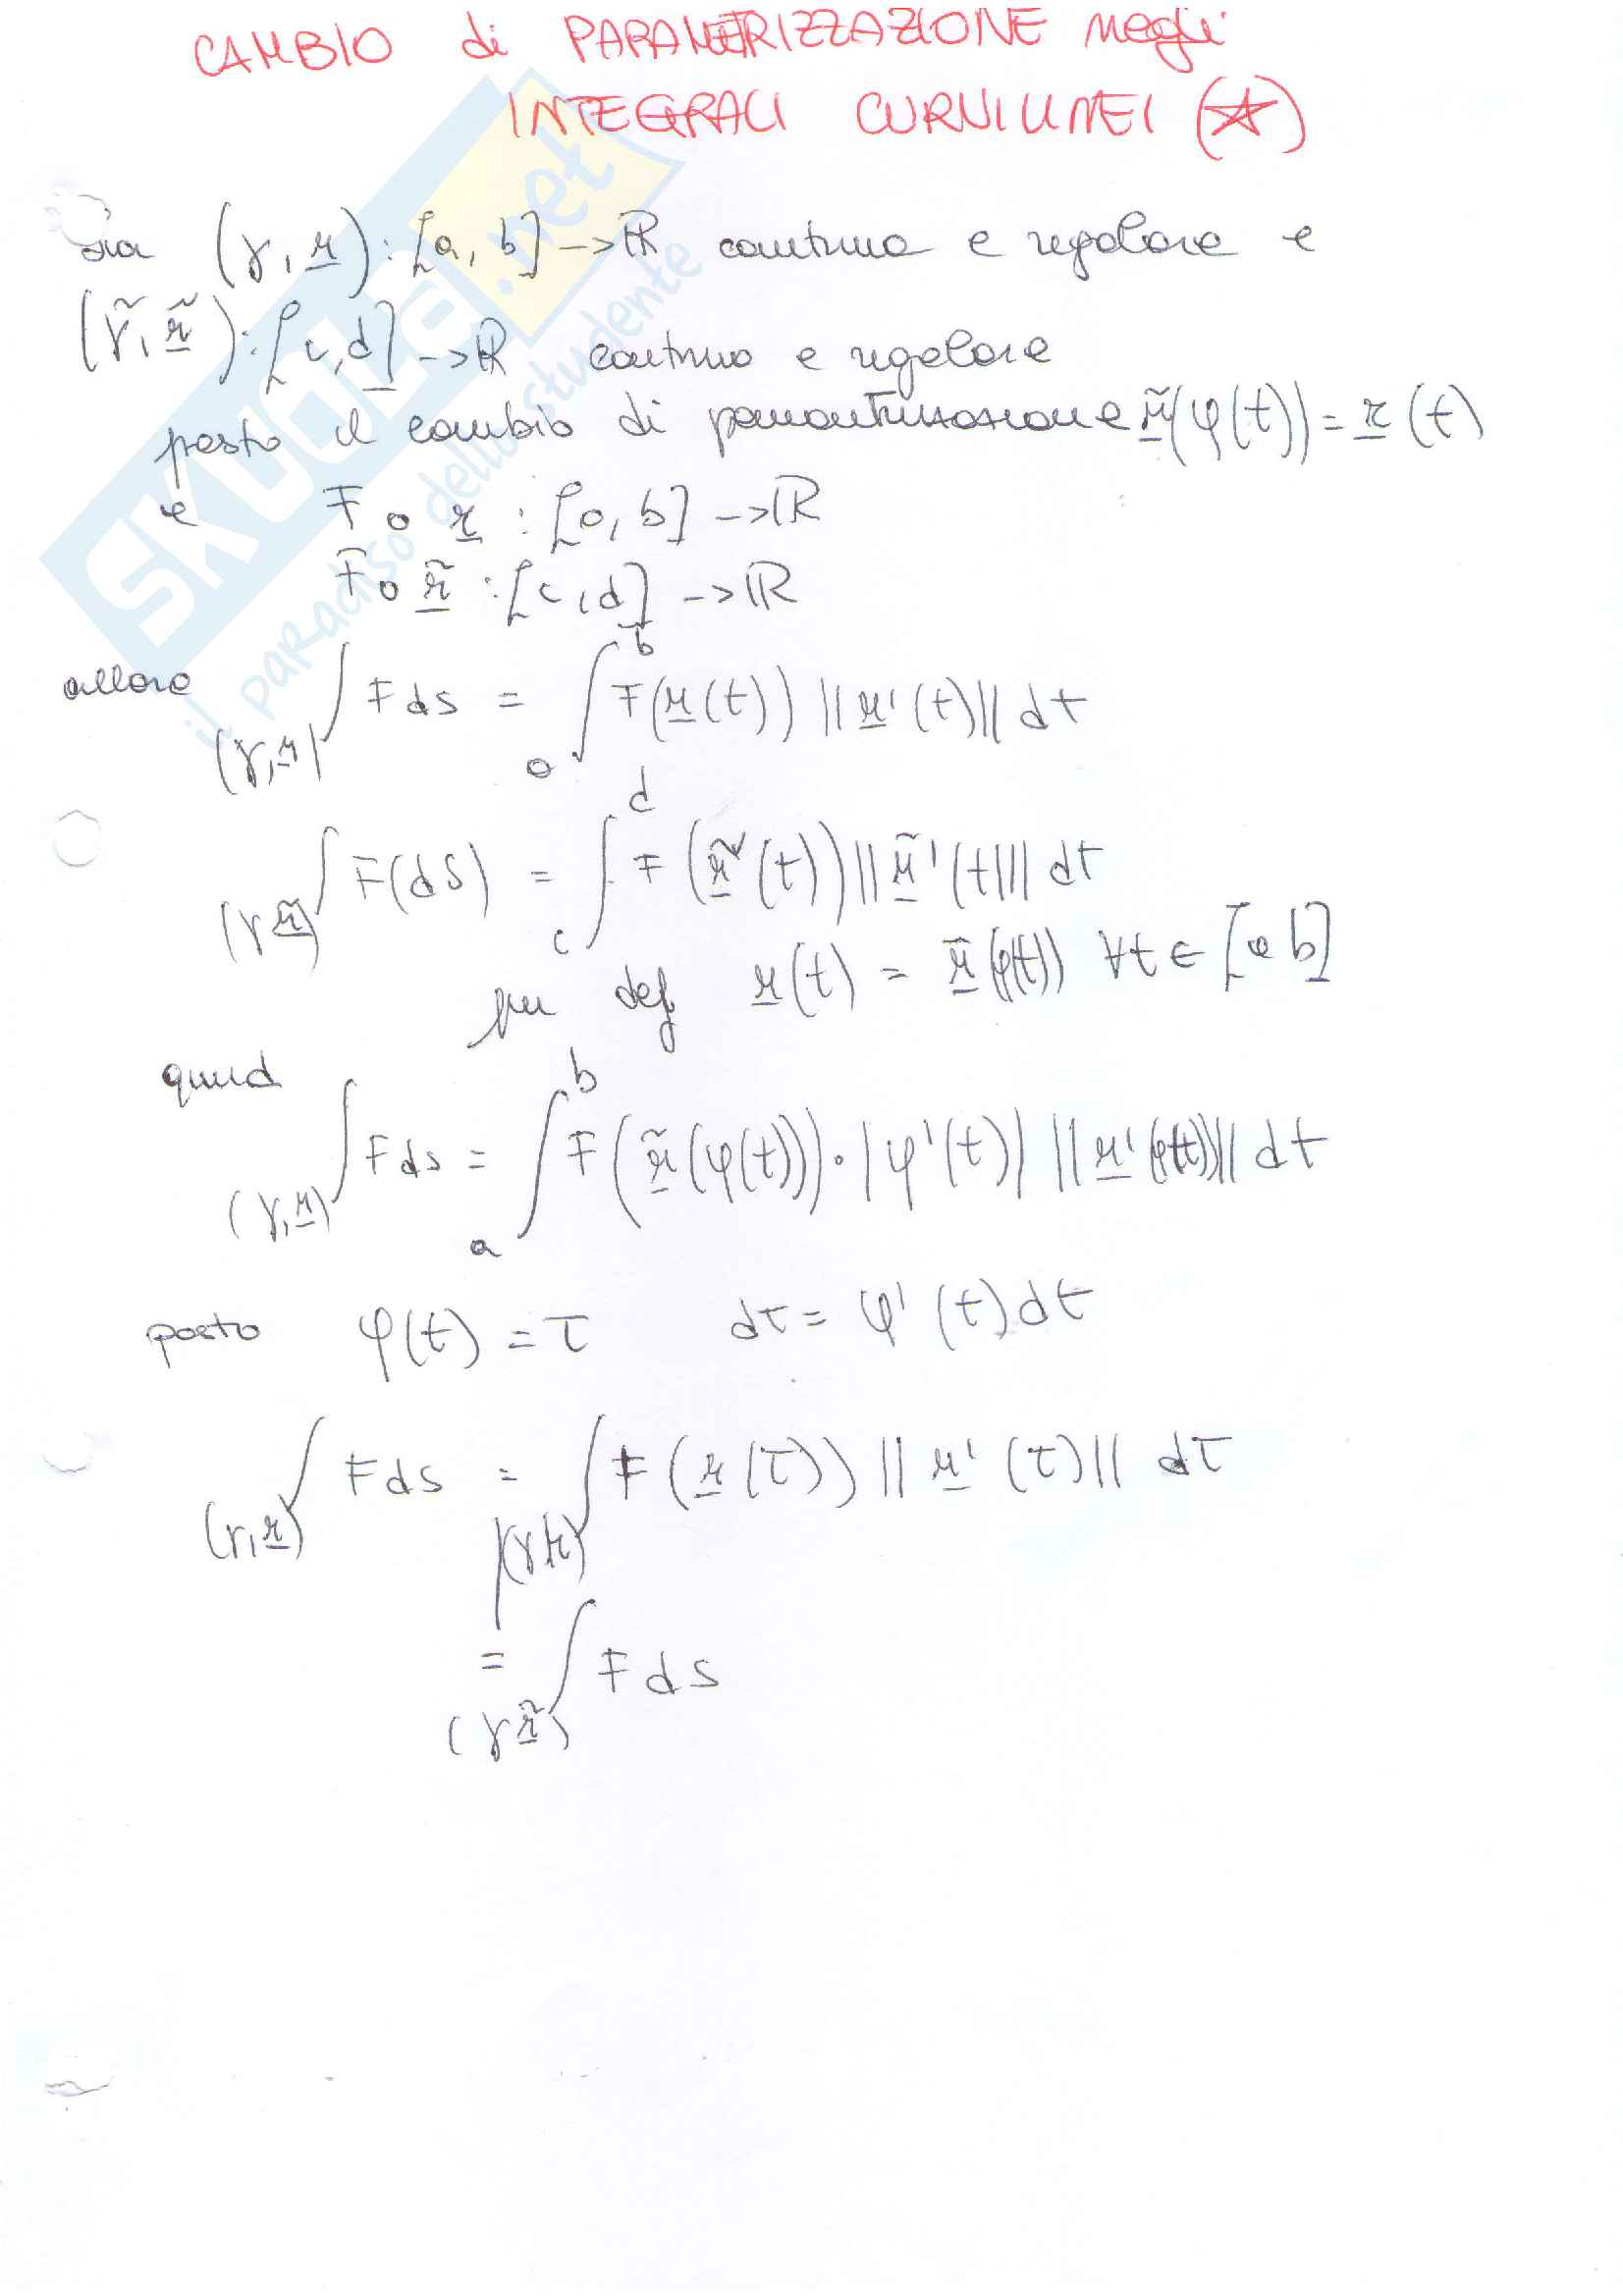 CAMBIO di PARAMETRIZZAZIONE negli
INTEGRALI CURVILINEI (☆)
sia (γ, r) : [a, b] -> ℝ continua e regolare e
(γ̃, r̃) : [c, d] -> ℝ continua e regolare
posto il cambio di parametrizzazione r̃(φ(t)) = r(t)
e F o r : [a, b] -> ℝ
F o r̃ : [c, d] -> ℝ
allora ∫(γ, r) F ds = ∫_a^b F(r(t)) ||r'(t)|| dt
∫(γ r̃) F(ds) = ∫_c^d F(r̃(t)) ||r̃'(t)|| dt
per def r(t) = r̃(φ(t)) ∀t ∈ [a b]
quind
∫(γ, r) F ds = ∫_a^b F(r̃(φ(t))) · |φ'(t)| ||r'(φ(t))|| dt
posto φ(t) = τ dτ = φ'(t) dt
∫(γ, r) F ds = ∫(γ r) F(r(τ)) ||r'(τ)|| dτ
= ∫(γ r̃) F ds
SKUOLA.net
il paradiso dello studente